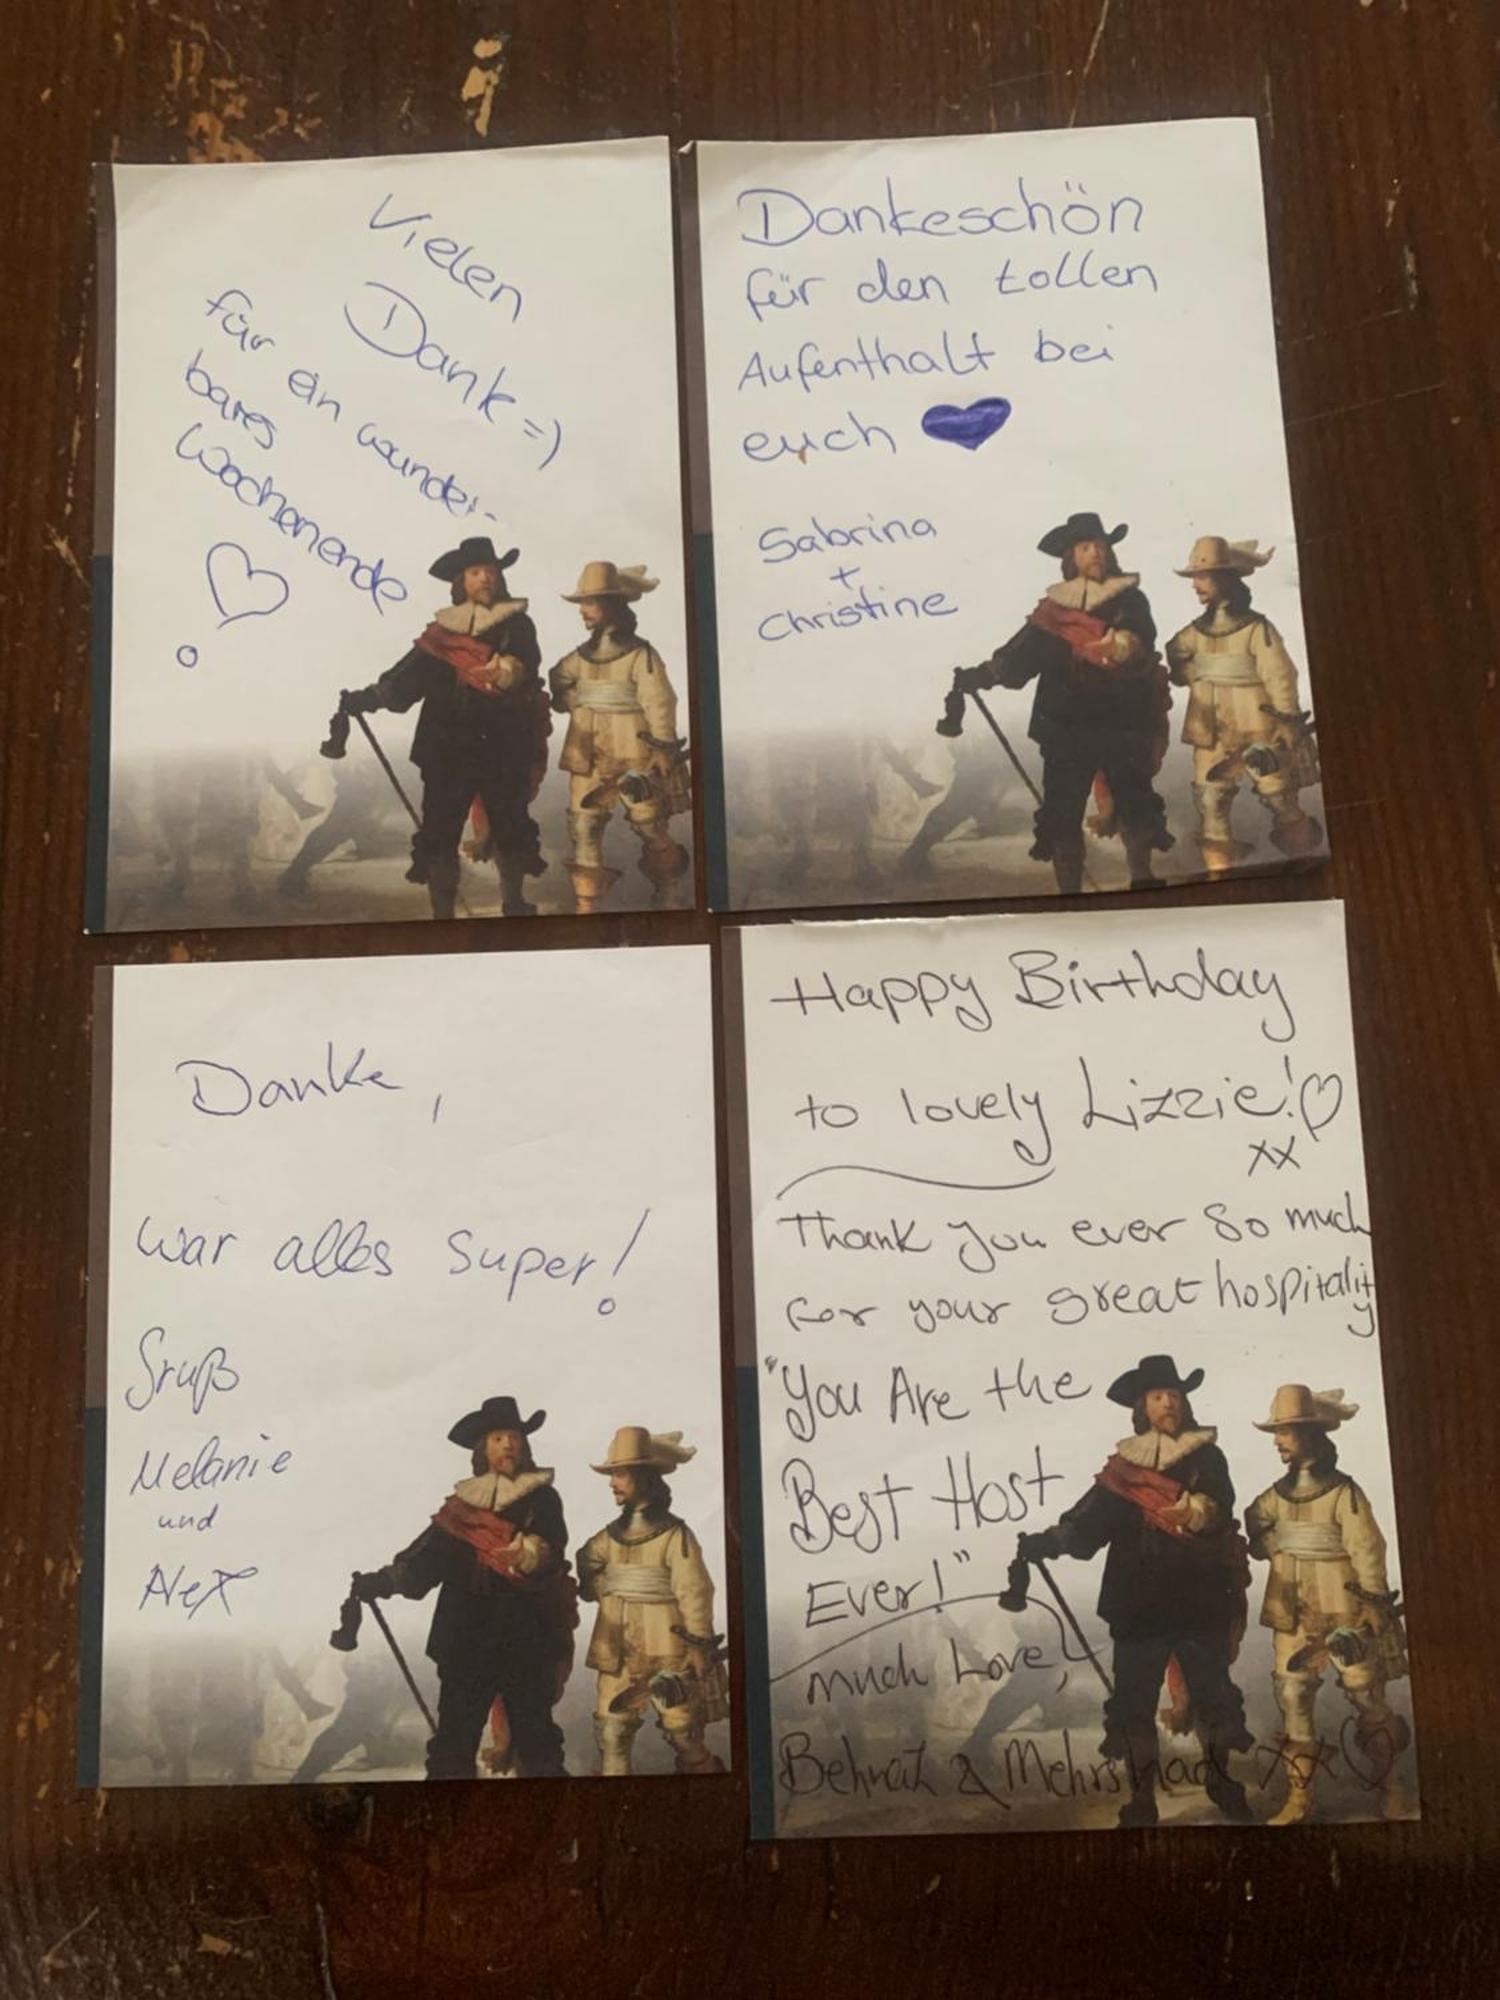 Vielen
Dank =)
für ein wunder-
bares
Wochenende
Dankeschön
für den tollen
Aufenthalt bei
euch
Sabrina
+
Christine
Danke,
war alles super!
Gruß
Melanie
und
Alex
Happy Birthday
to lovely Lizzie!
xx
Thank you ever so much
for your great hospitality
"You Are the
Best Host
Ever!"
much Love,
& Mehrshad xx